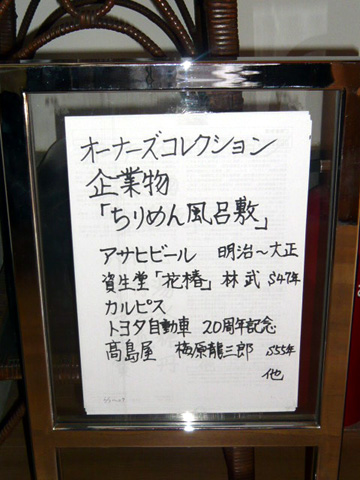 オーナーズコレクション
企業物
「ちりめん風呂敷」
アサヒビール 明治～大正
資生堂「花椿」林武 S47年
カルピス
トヨタ自動車 20周年記念
髙島屋 梅原龍三郎 S55年
他